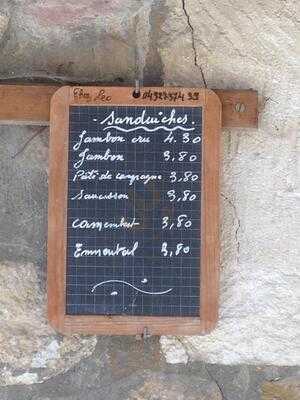 Chez Leo
- Sandwiches.
Jambon cru 4.30
Jambon 3,80
Pâté de campagne 3,80
Saucisson 3,80
camembert 3,80
Emmental 3,80